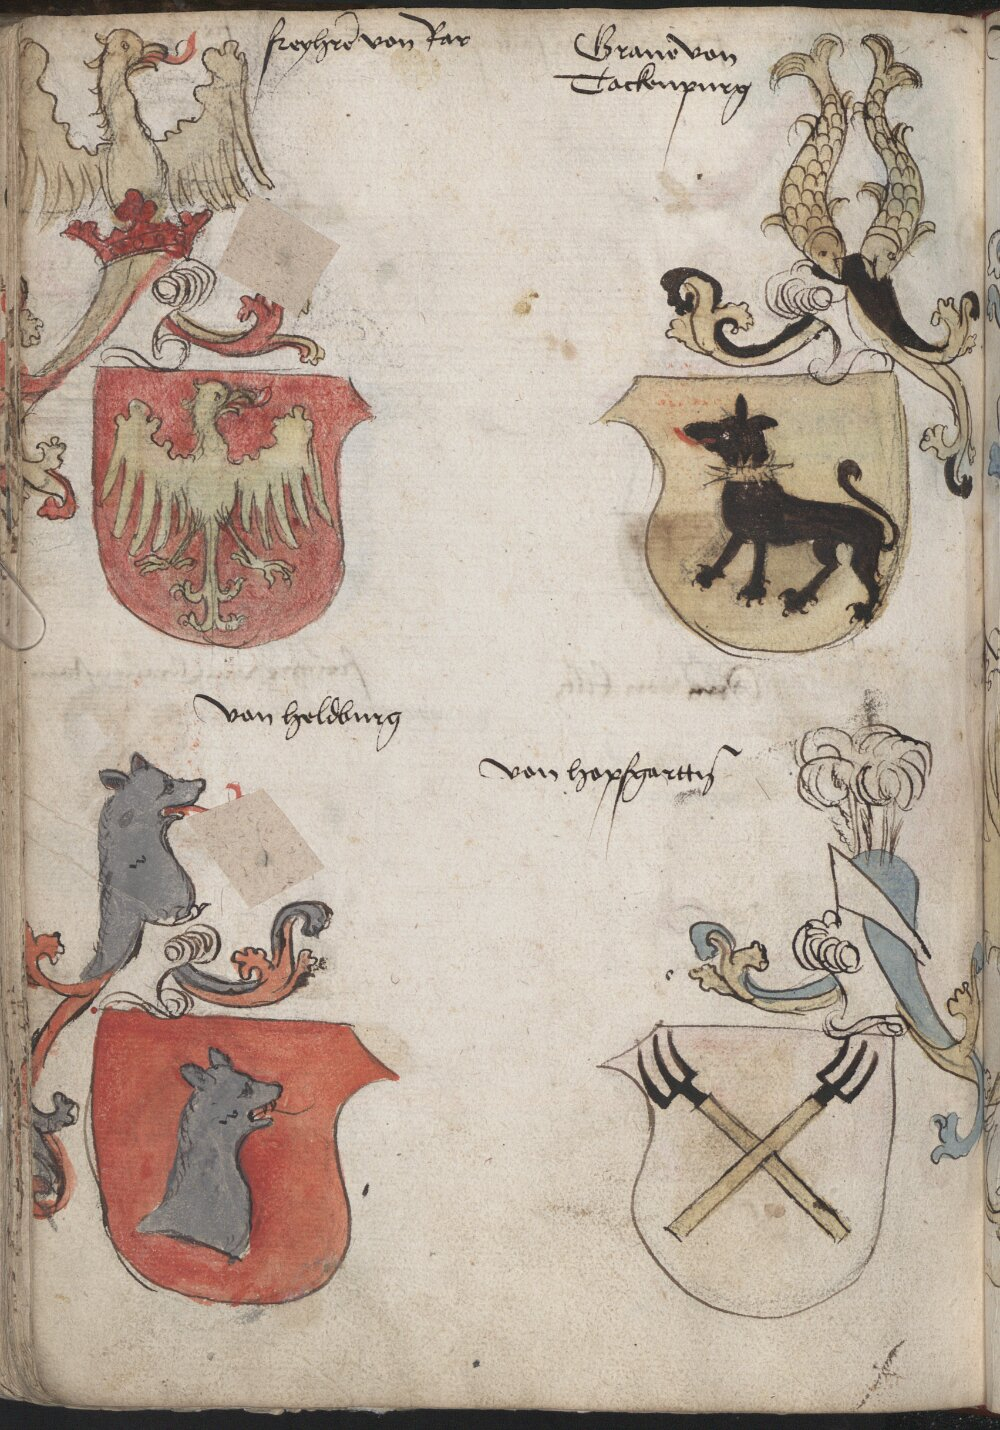 freyhrē von Rar
Graue von
Tockenpurg
von heldburg
von hopfgarttn̄